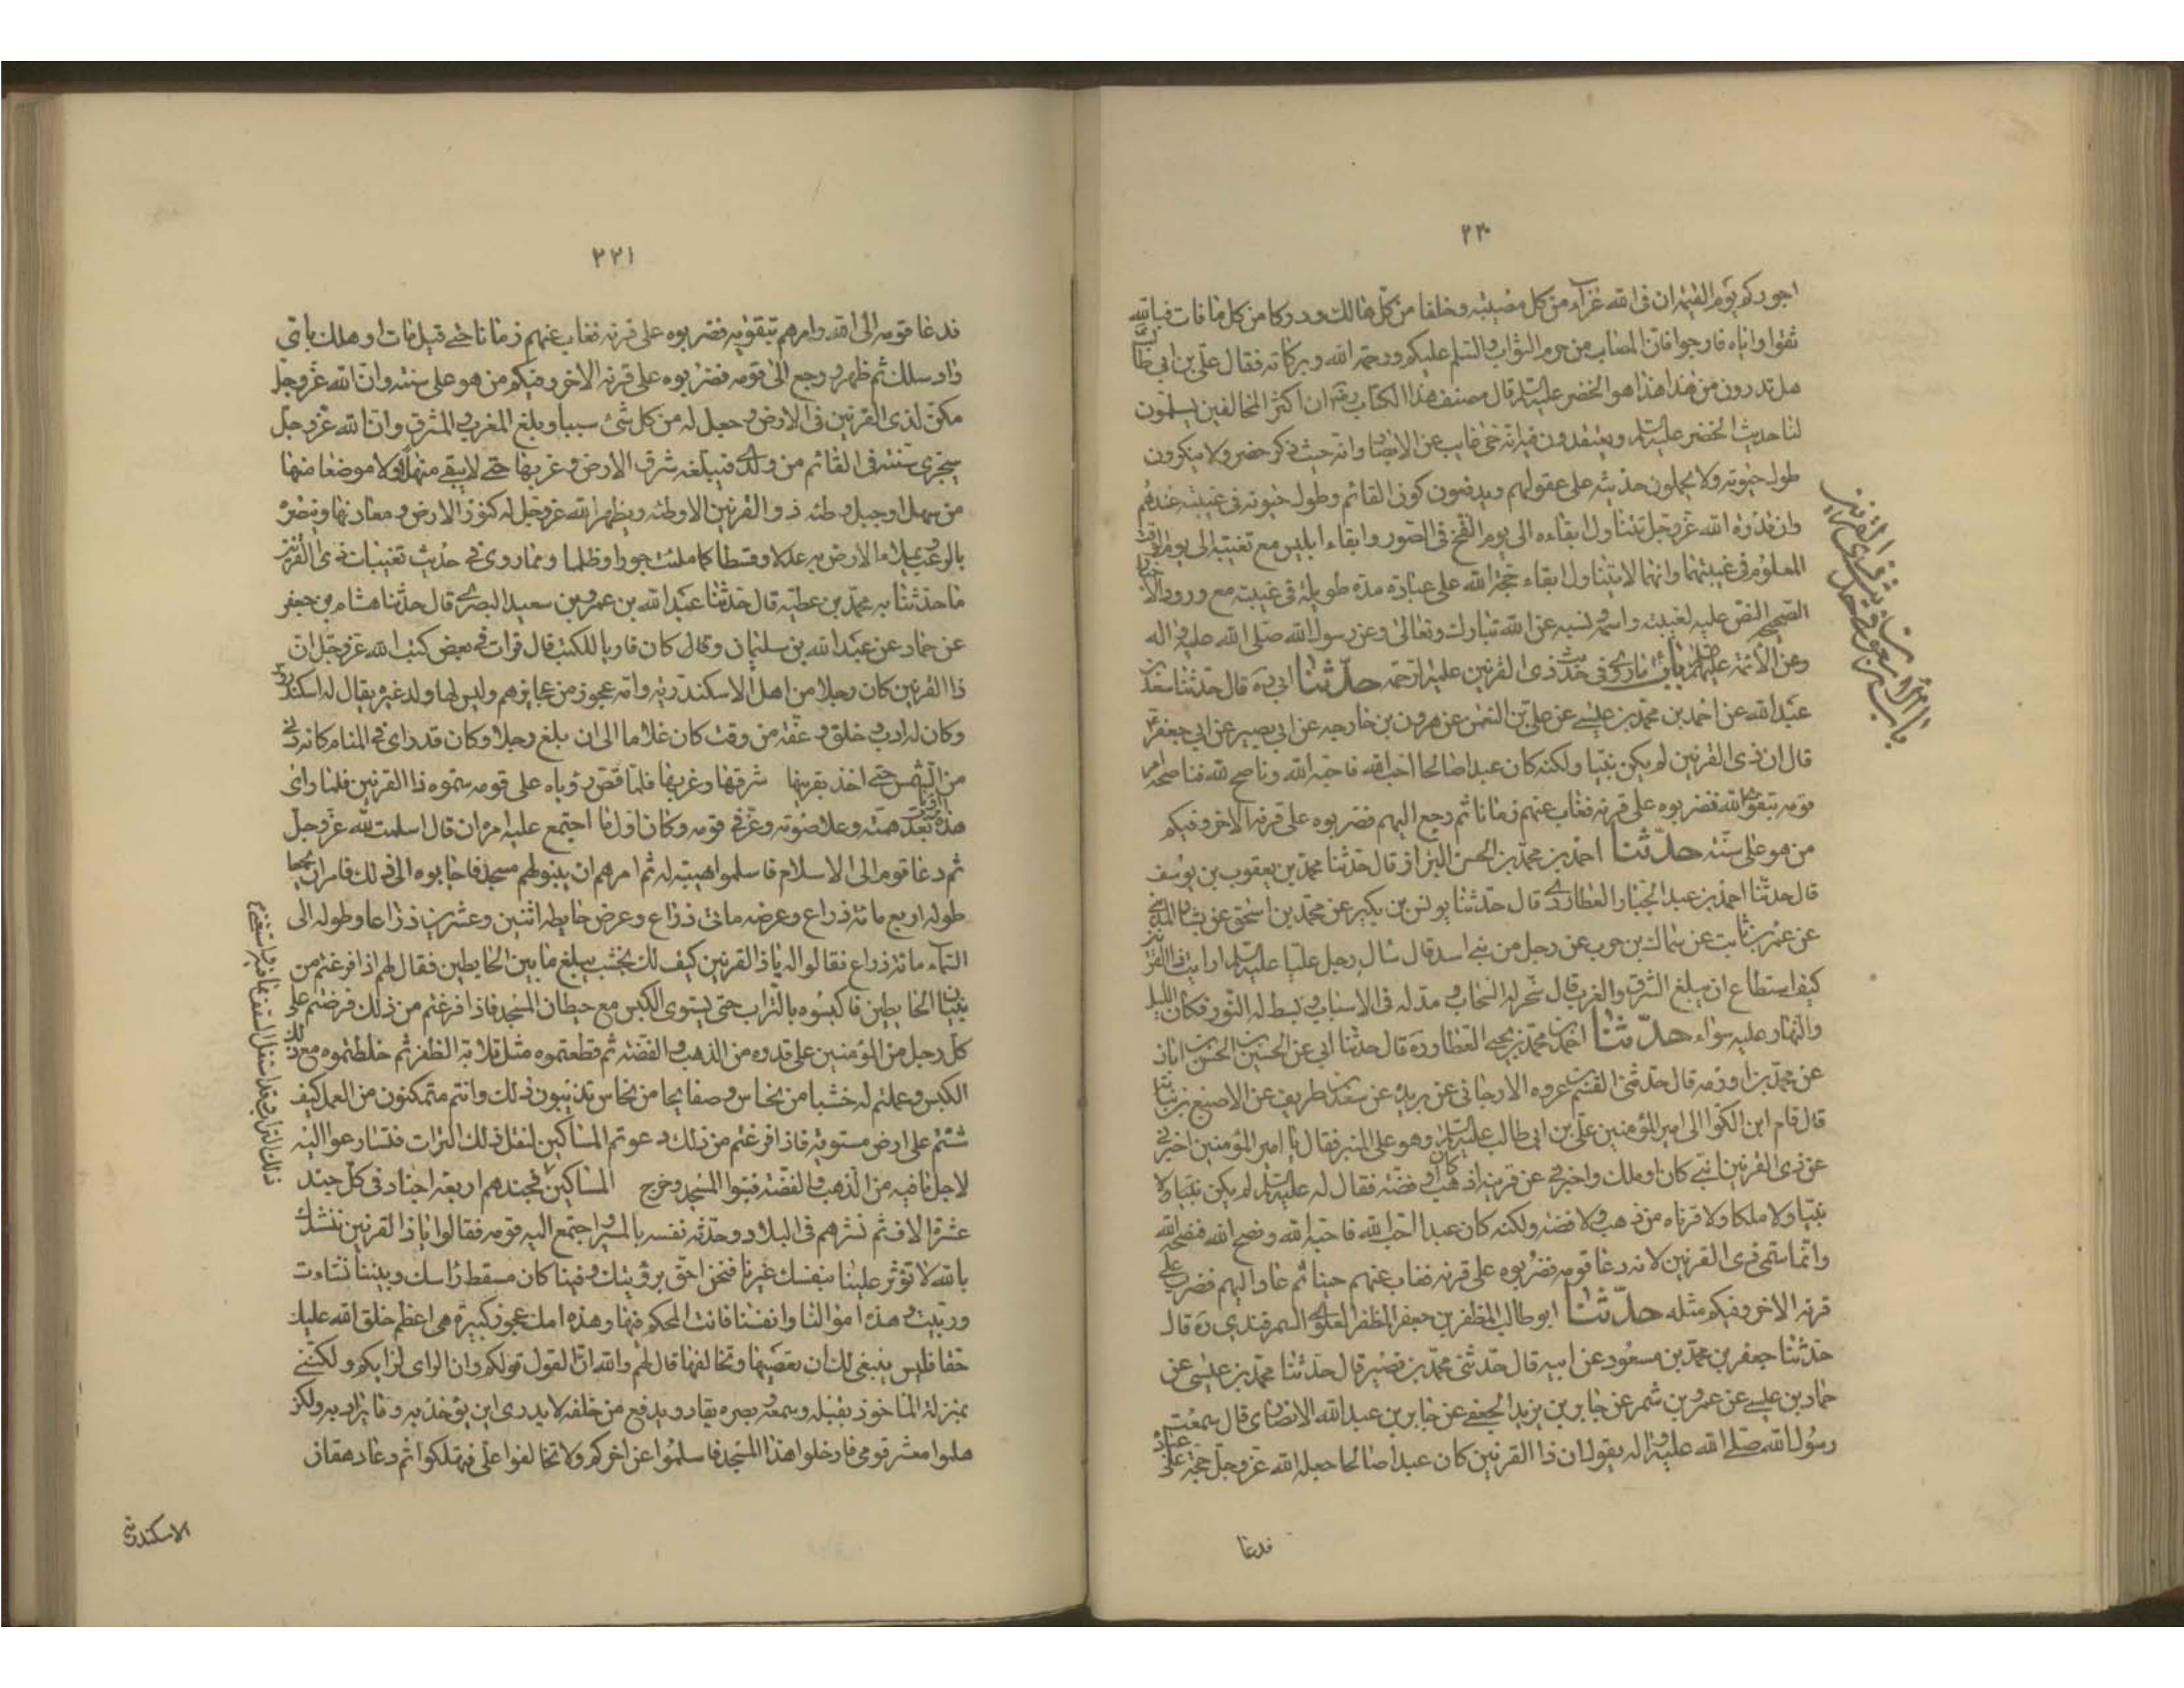 ۲۲۰
اجوركم يوم القيمة ان فى الله عزاء من كل مصيبة وخلفا من كل هالك ودركا من كل ما فات فبالله
ثقوا واياه فارجوا فان المصاب من حرم الثواب والسلم عليكم ورحمة الله وبركاته فقال على بن ابي طالب
هل تدرون من هذا هذا هو الخضر عليه السلم قال مصنف هذا الكتاب ره ان اكثر المخالفين يسلمون
لنا حديث الخضر عليه السلم ويعتقدون فيه انه حى غايب عن الابصار وانه حيث ذكر حضر ولا ينكرون
طول حيوته ولا يحملون حديثه على عقولهم ويدفعون كون القائم وطول حيوته فى غيبته عندهم
وان قدرة الله عز وجل تتناول ابقاءه الى يوم النفخ فى الصور وابقاء ابليس مع لعنته الى يوم الوقت
المعلوم فى غيبتهما وانها لا يتناول ابقاء حجة الله على عباده مدة طويلة فى غيبته مع ورود الاخبار
الصحيحة النص عليه لغيبته واسمه ونسبه عن الله تبارك وتعالى وعن رسول الله صلى الله عليه واله
وعن الأئمة عليهم السلم باب ما روى فى حديث ذى القرنين عليه الرحمة حدّثنا ابى ره قال حدثنا سعد بن
عبد الله عن احمد بن محمد بن عيسى عن على بن النعمن عن هرون بن خارجه عن ابى بصير عن ابى جعفر ع
قال ان ذى القرنين لم يكن نبيا ولكنه كان عبدا صالحا احب الله فاحبه الله وناصح لله فناصحه امر
قومه بتقوى الله فضربوه على قرنه فغاب عنهم زمانا ثم رجع اليهم فضربوه على قرنه الاخر وفيكم
من هو على سنته حدّثنا احمد بن محمد بن الحسن البزاز قال حدثنا محمد بن يعقوب بن يوسف
قال حدثنا احمد بن عبد الجبار العطاردى قال حدثنا يونس بن بكير عن محمد بن اسحق عن بشار المدنى
عن عمر بن ثابت عن سماك بن حرب عن رجل من بنى اسد قال سال رجل عليا عليه السلم ارايت ذا القرنين
كيف استطاع ان يبلغ الشرق والغرب قال سخر له السحاب ومد له فى الاسباب وبسط له النور فكان الليل
والنهار عليه سواء حدّثنا احمد بن محمد بن يحيى العطار ره قال حدثنا ابى عن الحسين بن الحسن بن ابان
عن محمد بن اورمه قال حدثنى القسم بن عروه الارجانى عن بريد عن سعد بن طريف عن الاصبغ بن نباته
قال قام ابن الكوا الى امير المؤمنين على بن ابى طالب عليه السلم وهو على المنبر فقال يا امير المؤمنين اخبرنى
عن ذى القرنين انبى كان او ملك واخبرنى عن قرنيه اذهب كان او فضه فقال له عليه السلم لم يكن نبيا ولا
نبيا ولا ملكا ولا قرناه من ذهب ولا فضة ولكنه كان عبدا احب الله فاحبه الله ونصح الله فنصحه الله
وانما سمى ذى القرنين لانه دعا قومه فضربوه على قرنه فغاب عنهم حينا ثم عاد اليهم فضرب على
قرنه الاخر وفيكم مثله حدّثنا ابو طالب المظفر بن جعفر المظفر العلوى السمرقندى ره قال
حدثنا جعفر بن محمد بن مسعود عن ابيه قال حدثنى محمد بن نصير قال حدثنا محمد بن عيسى عن
حماد بن عيسى عن عمرو بن شمر عن جابر بن يزيد الجعفى عن جابر بن عبد الله الانصاى قال سمعت
رسول الله صلى الله عليه واله يقول ان ذا القرنين كان عبدا صالحا جعله الله عز وجل حجة على عباده
فدعا
۲۲۱
فدعا قومه الى الله وامرهم بتقويه فضربوه على قرنه فغاب عنهم زمانا حتى قيل مات او هلك باى
واد سلك ثم ظهر ورجع الى قومه فضربوه على قرنه الاخر وفيكم من هو على سنته وان الله عز وجل
مكن لذى القرنين فى الارض وجعل له من كل شئ سببا وبلغ المغرب والمشرق وان الله عز وجل
سيجرى سنته فى القائم من ولدى فيبلغه شرق الارض وغربها حتى لا يبقى منهلا ولا موضعا منها
من سهل او جبل وطئه ذو القرنين الا وطئه ويظهر الله عز وجل له كنوز الارض ومعادنها وينصره
بالرعب يملاء الارض به عدلا وقسطا كما ملئت جورا وظلما ومما روى فى حديث تغيبات ذى القرنين
ما حدثنا به محمد بن عطيه قال حدثنا عبد الله بن عمرو بن سعيد البصرى قال حدثنا هشام بن جعفر
عن حماد عن عبد الله بن سليمان وقال كان قاريا للكتب قال قرات فى بعض كتب الله عز وجل ان
ذا القرنين كان رجلا من اهل الاسكندرية وامه عجوز من عجايزهم وليس لها ولد غيره يقال له اسكندروس
وكان له ادب وخلق وعفة من وقت كان غلاما الى ان بلغ رجلا وكان قد راى فى المنام كانه دنى
من الشمس حتى اخذ بقرنيها شرقها وغربها فلما قص رؤياه على قومه سموه ذا القرنين فلما راى
هذه الرؤيا بعدت همته وعلا صوته وعز فى قومه وكان اول ما اجتمع عليه امره ان قال اسلمت لله عز وجل
ثم دعا قومه الى الاسلام فاسلموا هيبة له ثم امرهم ان يبنوا لهم مسجدا فاجابوه الى ذلك فامر ان يجعل
طوله اربع مائة ذراع وعرضه مائى ذراع وعرض حايطه اثنين وعشرين ذراعا وطوله الى
السماء مائة ذراع فقالوا له يا ذا القرنين كيف لك بخشب يبلغ ما بين الحايطين فقال لهم اذا فرغتم من
بنيان الحايطين فاكبسوه بالتراب حتى يستوى الكبس مع حيطان المسجد فاذا فرغتم من ذلك فرضتم على
كل رجل من المؤمنين على قدره من الذهب والفضة ثم قطعتموه مثل قلامة الظفر ثم خلطتموه مع ذلك
الكبس وعملتم له خشبا من نحاس وصفايحا من نحاس تذيبون ذلك وانتم متمكنون من العمل كيف
شئتم على ارض مستوية فاذا فرغتم من ذلك دعوتم المساكين لنقل ذلك التراب فتسارعوا اليه
لاجل ما فيه من الذهب والفضة فبنوا المسجد وخرج المساكين فجندهم اربعة اجناد فى كل جند
عشرة الاف ثم نشرهم فى البلاد وحدث نفسه بالمسير واجتمع اليه قومه فقالوا يا ذا القرنين ننشدك
بالله لا تؤثر علينا بنفسك غيرنا فنحن احق برؤيتك وفينا كان مسقط راسك وبيننا نشات
وربيت وهذه اموالنا وانفسنا فانت المحكم فيها وهذه امك عجوز كبيرة هى اعظم خلق الله عليك
حقا فليس ينبغى لك ان تعصيها وتخالفها قال لهم والله ان القول قولكم وان الراى لرايكم ولكننى
بمنزلة الماخوذ بقلبه وسمعه وبصره يقاد ويدفع من خلفه لا يدرى اين يؤخذ به وما يراد به ولكن
هلموا معشر قومى فادخلوا هذا المسجد فاسلموا عن اخركم ولا تخالفوا على فتهلكوا ثم دعا دهقان
الاسكندرية